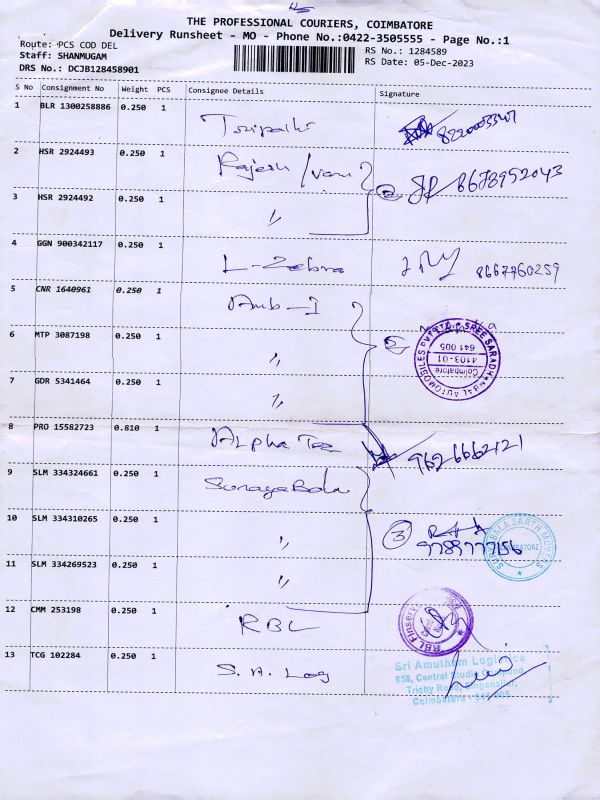 THE PROFESSIONAL COURIERS, COIMBATORE
Delivery Runsheet - MO - Phone No.:0422-3505555 - Page No.:1
Route: PCS COD DEL
RS No.: 1284589
Staff: SHANMUGAM
RS Date: 05-Dec-2023
DRS No.: DCJB128458901
S No Consignment No Weight PCS Consignee Details Signature
1 BLR 1300258886 0.250 1
2 HSR 2924493 0.250 1 Rajesh 8678952043
3 HSR 2924492 0.250 1 "
4 GGN 900342117 0.250 1 L-Zebra 8667760259
5 CNR 1640961 0.250 1
6 MTP 3087198 0.250 1 "
7 GDR 5341464 0.250 1 "
SREE SARADHA
AUTOMOBILES
4103-01
641 005
Coimbatore
8 PRO 15582723 0.810 1 Alpha 9626662121
9 SLM 334324661 0.250 1
10 SLM 334310265 0.250 1 " 3
9789777156
EARTH MOVERS
11 SLM 334269523 0.250 1 "
12 CMM 253198 0.250 1 RBL
RBL Finserv
13 TCG 102284 0.250 1 S. A. Log
Sri Amutham Logistics
658, Central Studio
Trichy Road, Singanallur,
Coimbatore